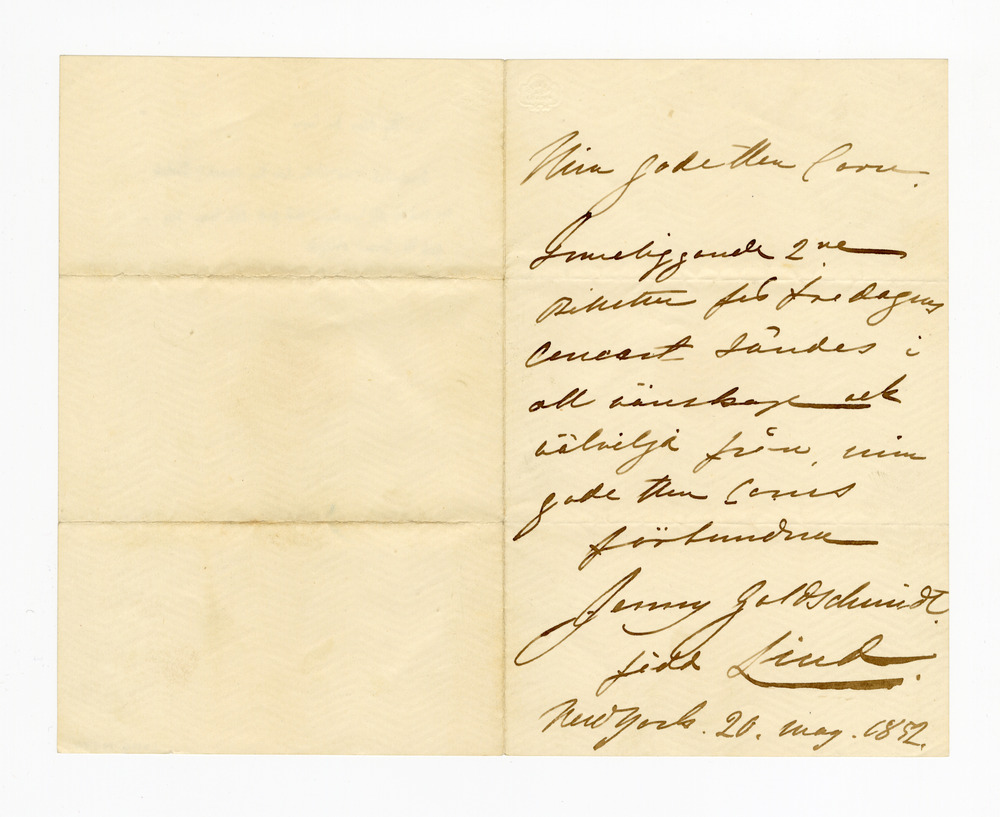 Min gode Herr
Inneliggande 2ne
Biketter för fredagens
Concert sändes i
all vänskap och
välvilja från min
gode Herr
förbundna
Jenny Goldschmidt.
född Lind.
New York. 20. may. 1852.